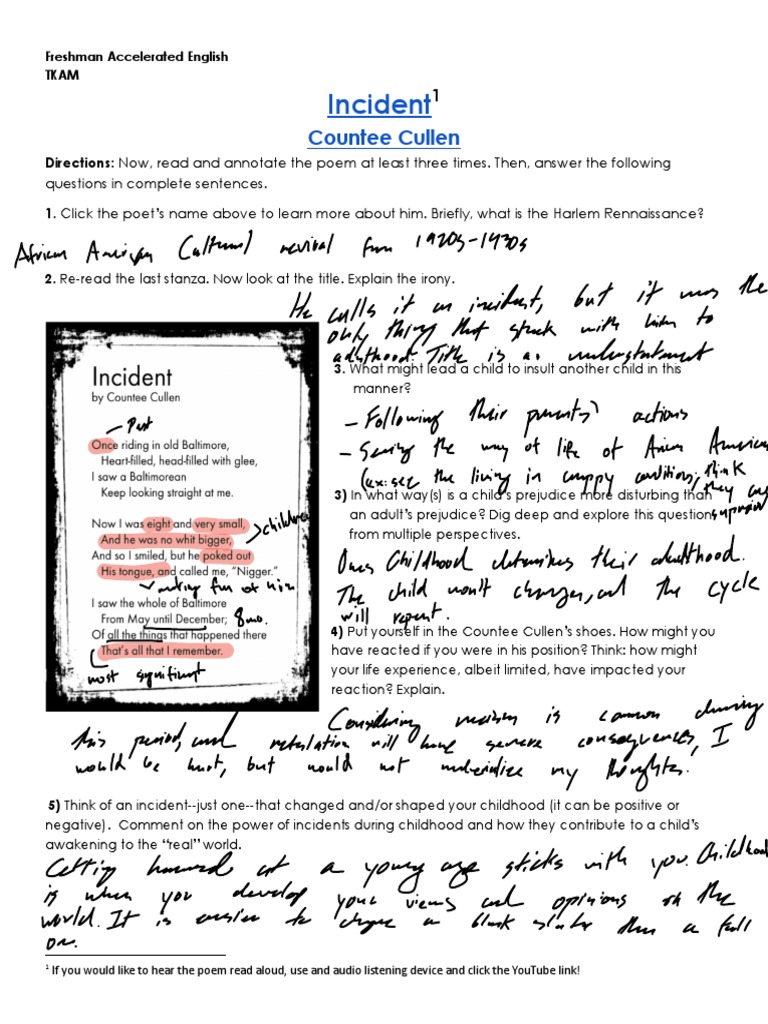 Freshman Accelerated English
TKAM
Incident¹
Countee Cullen
Directions: Now, read and annotate the poem at least three times. Then, answer the following
questions in complete sentences.
1. Click the poet's name above to learn more about him. Briefly, what is the Harlem Rennaissance?
African American Cultural revival from 1920s-1930s
2. Re-read the last stanza. Now look at the title. Explain the irony.
He calls it an incident, but it was the
only thing that stuck with him to
adulthood. Title is an understatement
Incident
by Countee Cullen
- Past
Once riding in old Baltimore,
Heart-filled, head-filled with glee,
I saw a Baltimorean
Keep looking straight at me.
Now I was eight and very small,
> children
And he was no whit bigger,
And so I smiled, but he poked out
His tongue, and called me, "Nigger."
making fun of him
I saw the whole of Baltimore
From May until December; 8 mo.
Of all the things that happened there
That's all that I remember.
most significant
3. What might lead a child to insult another child in this
manner?
- Following their parents' actions
- Seeing the way of life of American
(ex: see the living in crappy conditions, think
they are
3) In what way(s) is a child's prejudice more disturbing than
an adult's prejudice? Dig deep and explore this question
from multiple perspectives.
Ones Childhood determines their adulthood.
The child won't change, and the cycle
will repeat.
4) Put yourself in the Countee Cullen's shoes. How might you
have reacted if you were in his position? Think: how might
your life experience, albeit limited, have impacted your
reaction? Explain.
Considering racism is common during
this period, and retaliation will have severe consequences, I
would be hurt, but would not my thoughts.
5) Think of an incident--just one--that changed and/or shaped your childhood (it can be positive or
negative). Comment on the power of incidents during childhood and how they contribute to a child's
awakening to the "real" world.
Getting harmed at a young age sticks with you. Childhood
is when you develop your views and opinions on the
world. It is easier to change a blank slate then a full
on.
¹ If you would like to hear the poem read aloud, use and audio listening device and click the YouTube link!